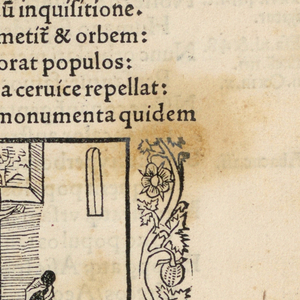 ũ inquisitione.
metit̃ & orbem:
orat populos:
a ceruice repellat:
monumenta quidem